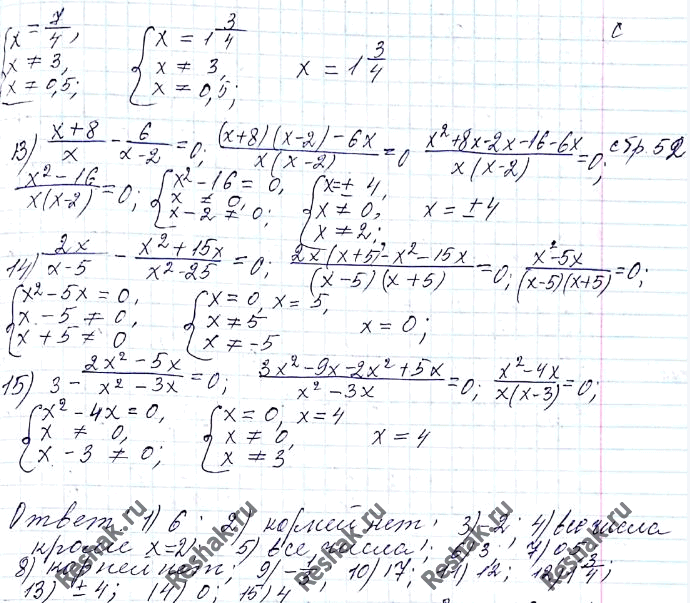 x = 7/4,   { x = 1 3/4   c
x ≠ 3,   x ≠ 3,   x = 1 3/4
x ≠ 0,5;   x ≠ 0,5;
13) (x+8)/x - 6/(x-2) = 0; ((x+8)(x-2)-6x)/(x(x-2)) = 0 (x²+8x-2x-16-6x)/(x(x-2)) = 0; стр. 52
(x²-16)/(x(x-2)) = 0; { x²-16 = 0, x ≠ 0, x-2 ≠ 0; { x = ± 4, x ≠ 0, x ≠ 2; x = ±4
14) 2x/(x-5) - (x²+15x)/(x²-25) = 0; (2x(x+5)-x²-15x)/((x-5)(x+5)) = 0; (x²-5x)/((x-5)(x+5)) = 0;
{ x²-5x = 0, x-5 ≠ 0, x+5 ≠ 0 { x = 0, x = 5, x ≠ 5 x ≠ -5 x = 0;
15) 3 - (2x²-5x)/(x²-3x) = 0; (3x²-9x-2x²+5x)/(x²-3x) = 0; (x²-4x)/(x(x-3)) = 0;
{ x²-4x = 0, x ≠ 0, x-3 ≠ 0; { x = 0; x = 4 x ≠ 0, x ≠ 3 x = 4
Ответ: 1) 6; 2) корней нет; 3) -2; 4) все числа
кроме x=2; 5) все числа; 6) 3; 7) 0,5;
8) корней нет; 9) 10) 17; 11) 12; 12) 1 3/4;
13) ±4; 14) 0; 15) 4
Reshak.ru Reshak.ru Reshak.ru Reshak.ru